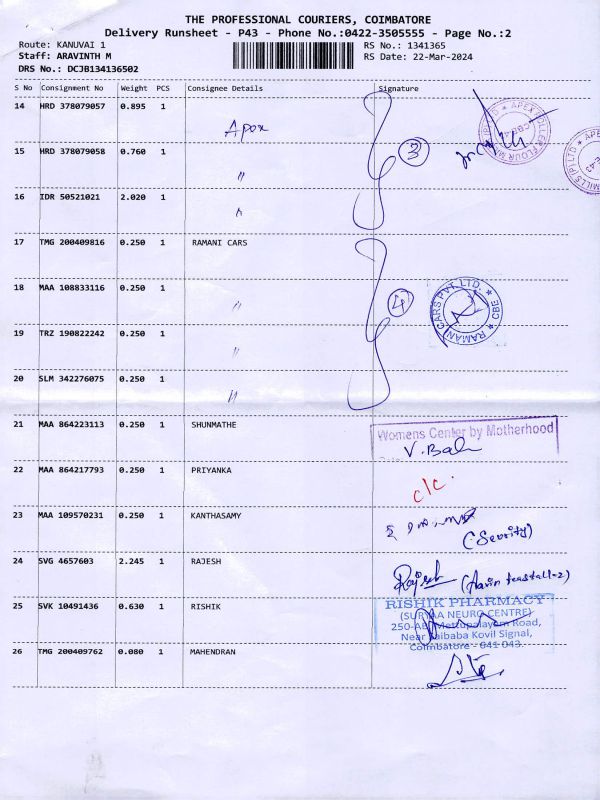 THE PROFESSIONAL COURIERS, COIMBATORE
Delivery Runsheet - P43 - Phone No.:0422-3505555 - Page No.:2
Route: KANUVAI 1
RS No.: 1341365
Staff: ARAVINTH M
RS Date: 22-Mar-2024
DRS No.: DCJB134136502
S No Consignment No Weight PCS Consignee Details Signature
14 HRD 378079057 0.895 1
Apex
15 HRD 378079058 0.760 1 〃
3
16 IDR 50521021 2.020 1 〃
17 TMG 200409816 0.250 1 RAMANI CARS
18 MAA 108833116 0.250 1 〃
4
RAMANI CARS PVT. LTD. ★ CBE ★
19 TRZ 190822242 0.250 1 〃
20 SLM 342276075 0.250 1 〃
21 MAA 864223113 0.250 1 SHUNMATHE
Womens Center by Motherhood
V. Bala
22 MAA 864217793 0.250 1 PRIYANKA
c/c.
23 MAA 109570231 0.250 1 KANTHASAMY
(Sevrity)
24 SVG 4657603 2.245 1 RAJESH
Rajesh (Aavin teastall-2)
25 SVK 10491436 0.630 1 RISHIK
RISHIK PHARMACY
(SURYAA NEURO CENTRE)
250-AB, Mettupalayam Road,
Near Saibaba Kovil Signal,
Coimbatore - 641 043.
26 TMG 200409762 0.080 1 MAHENDRAN